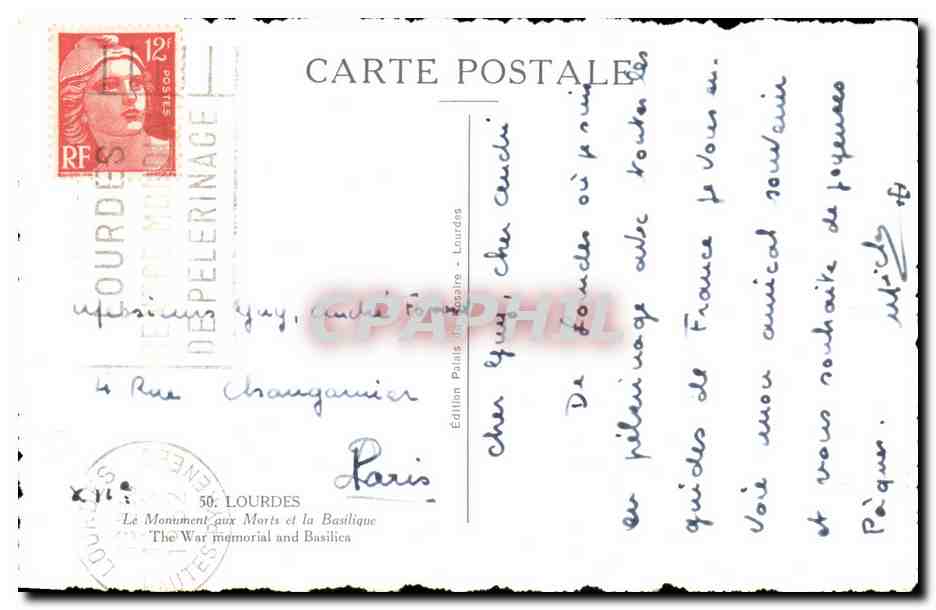 12f
POSTES
RF
LOURDES
DE PELERINAGE
CARTE POSTALE
Messieurs Guy, André
4 Rue Changarnier
Paris
XIIe
50. LOURDES
Le Monument aux Morts et la Basilique
The War memorial and Basilica
LOURDES
HAUTES-PYRENEES
Édition Palais du Rosaire - Lourdes
CPAPHIL
cher Guy, cher André
De Lourdes où je suis
en pélerinage avec toutes les
guides de France je vous en-
voie mon amical souvenir
et vous souhaite de joyeuses
Pâques.